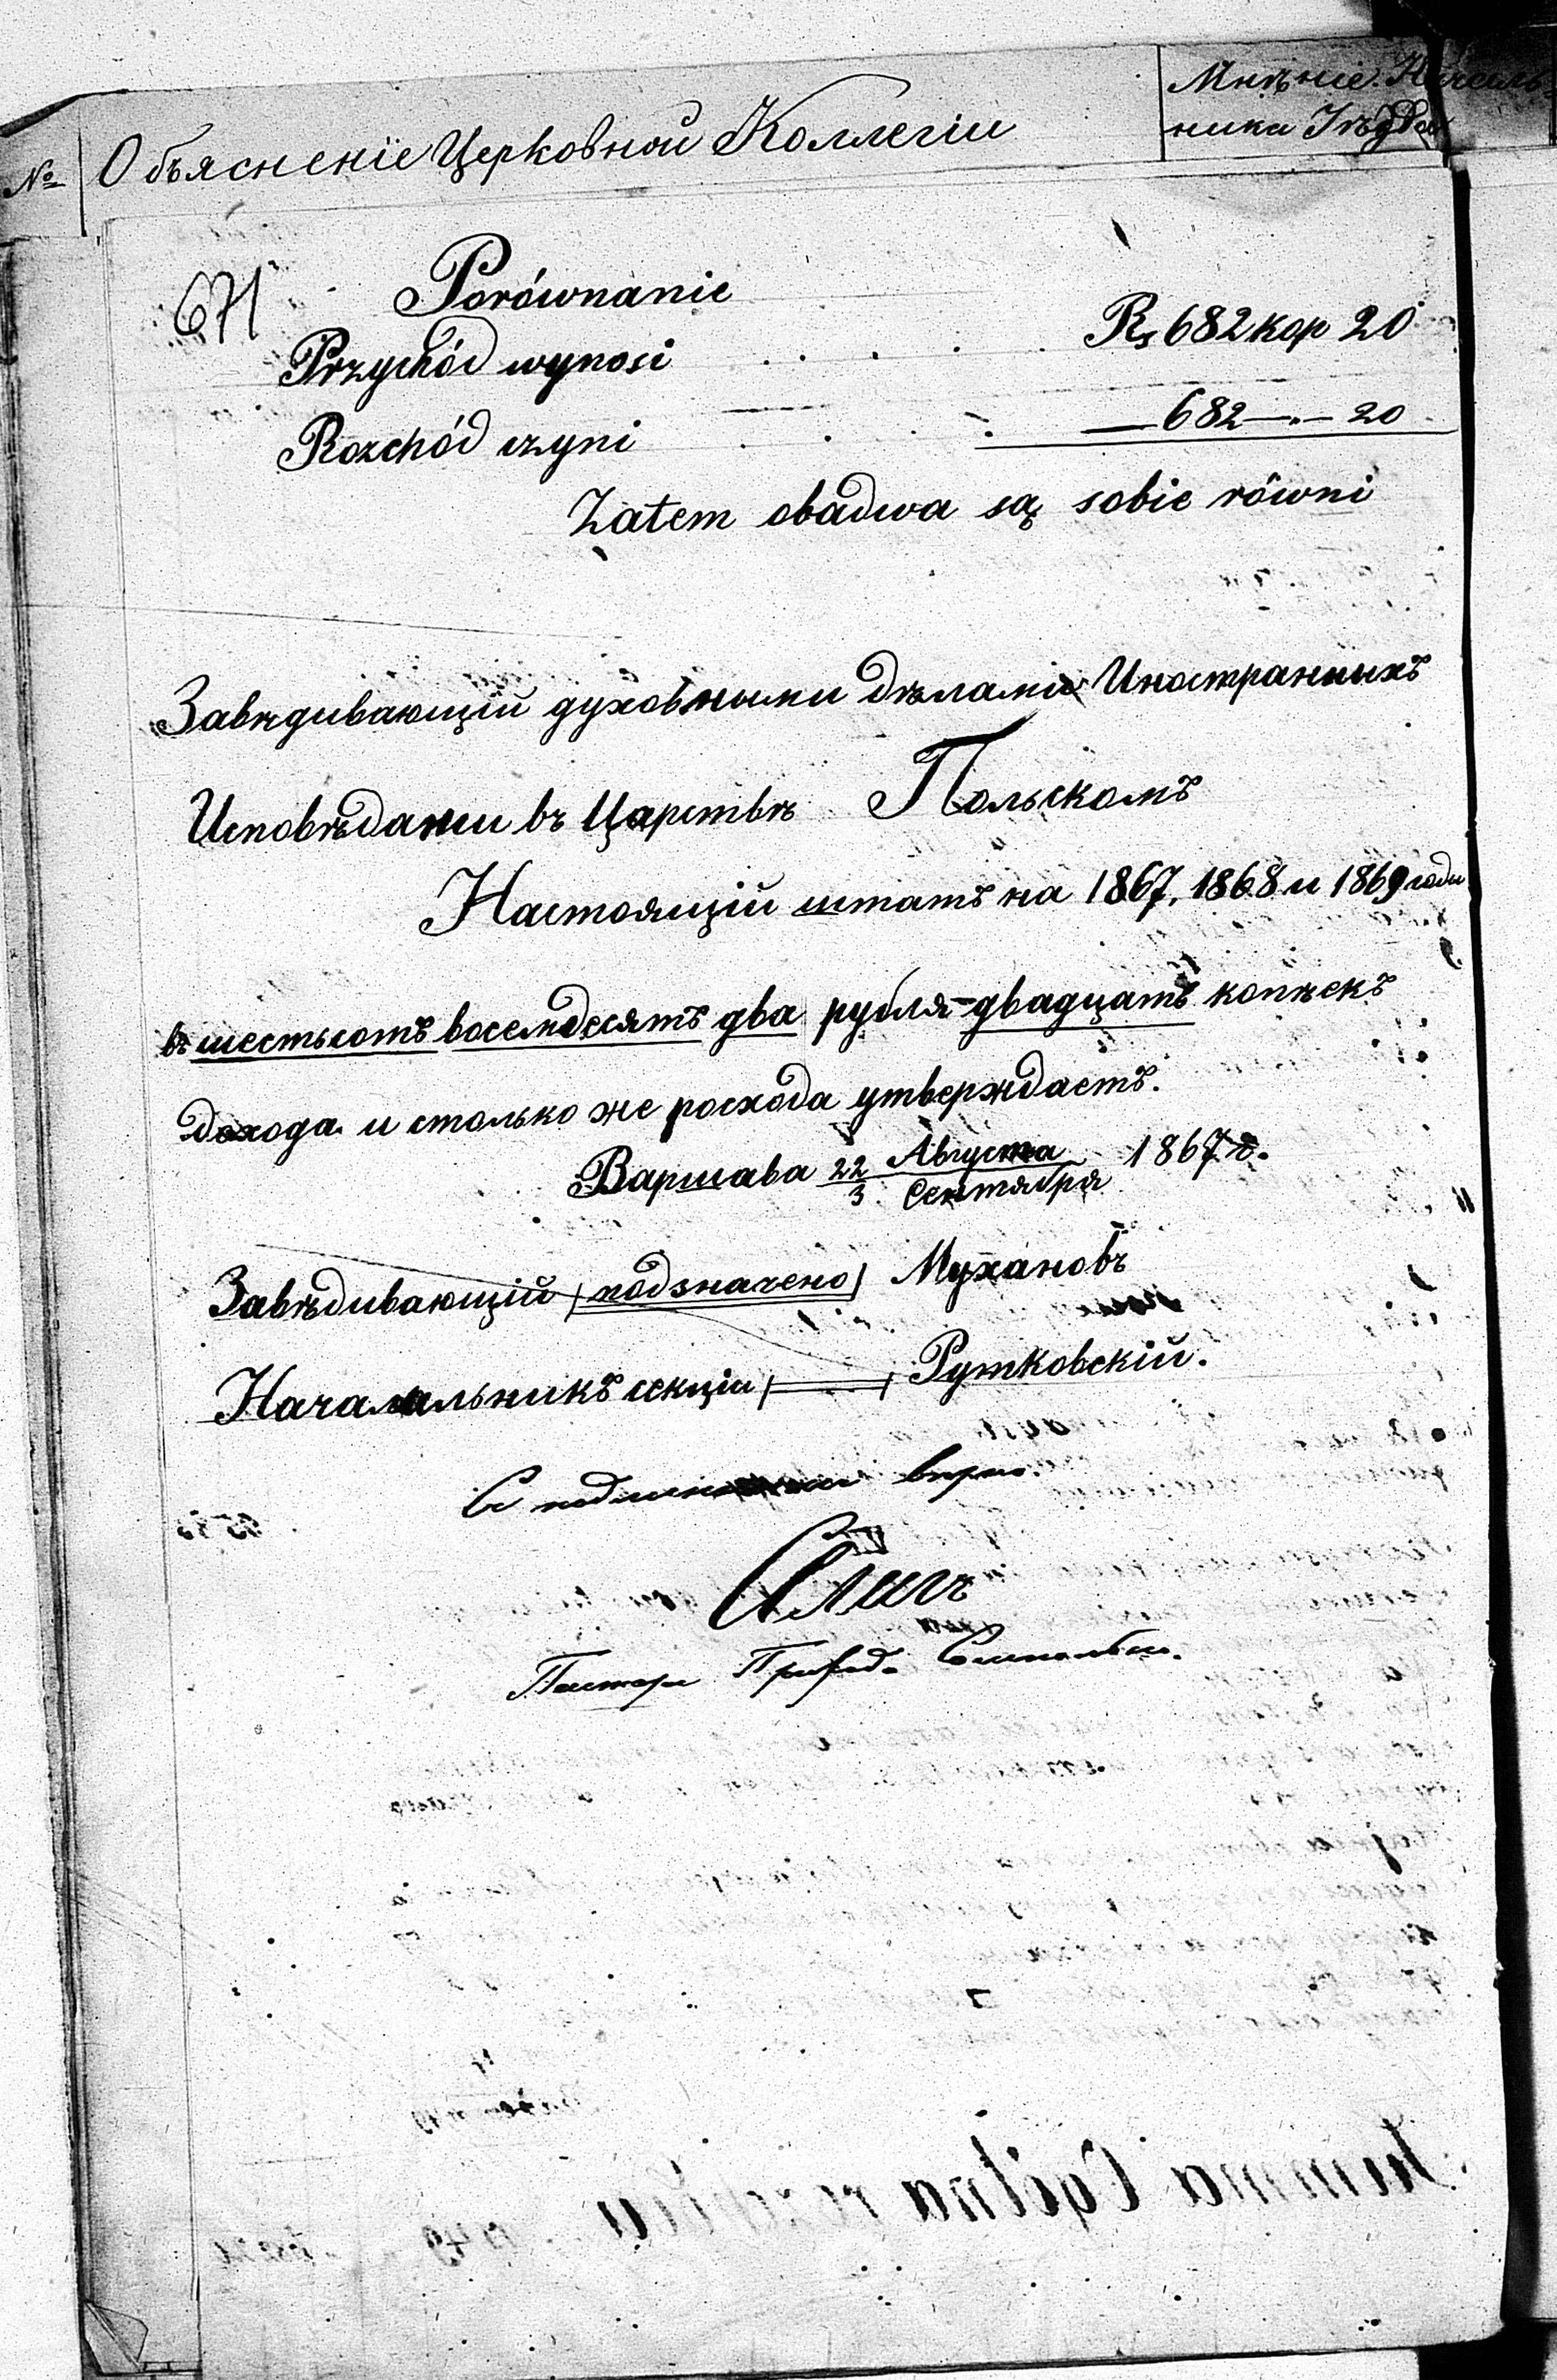 Мнѣніе Началь-
№ Объясненіе Церковной Коллегіи
ника Уѣзда
671
Porównanie
Przychód wynosi . . . . . Rs 682 kop 20
Rozchód czyni . . . . — 682 —.— 20
Zatem obadwa są sobie równi
Завѣдивающій духовными дѣлами Иностранныхъ
Исповѣдани въ Царствѣ Польскомъ
Настоящій штатъ на 1867, 1868 и 1869 годы
въ шестьсотъ восемдесятъ два рубля двадцать копѣекъ
дохода и столько же росхода утверждаетъ.
Варшава 22 Августа / 3 Сентября 1867 г.
Завѣдивающій (подзначено) Мухановъ
Начальникъ секціи (—) Рутковскій.
Съ вѣрно.
Пастора
Summa Ogólna rozchodu